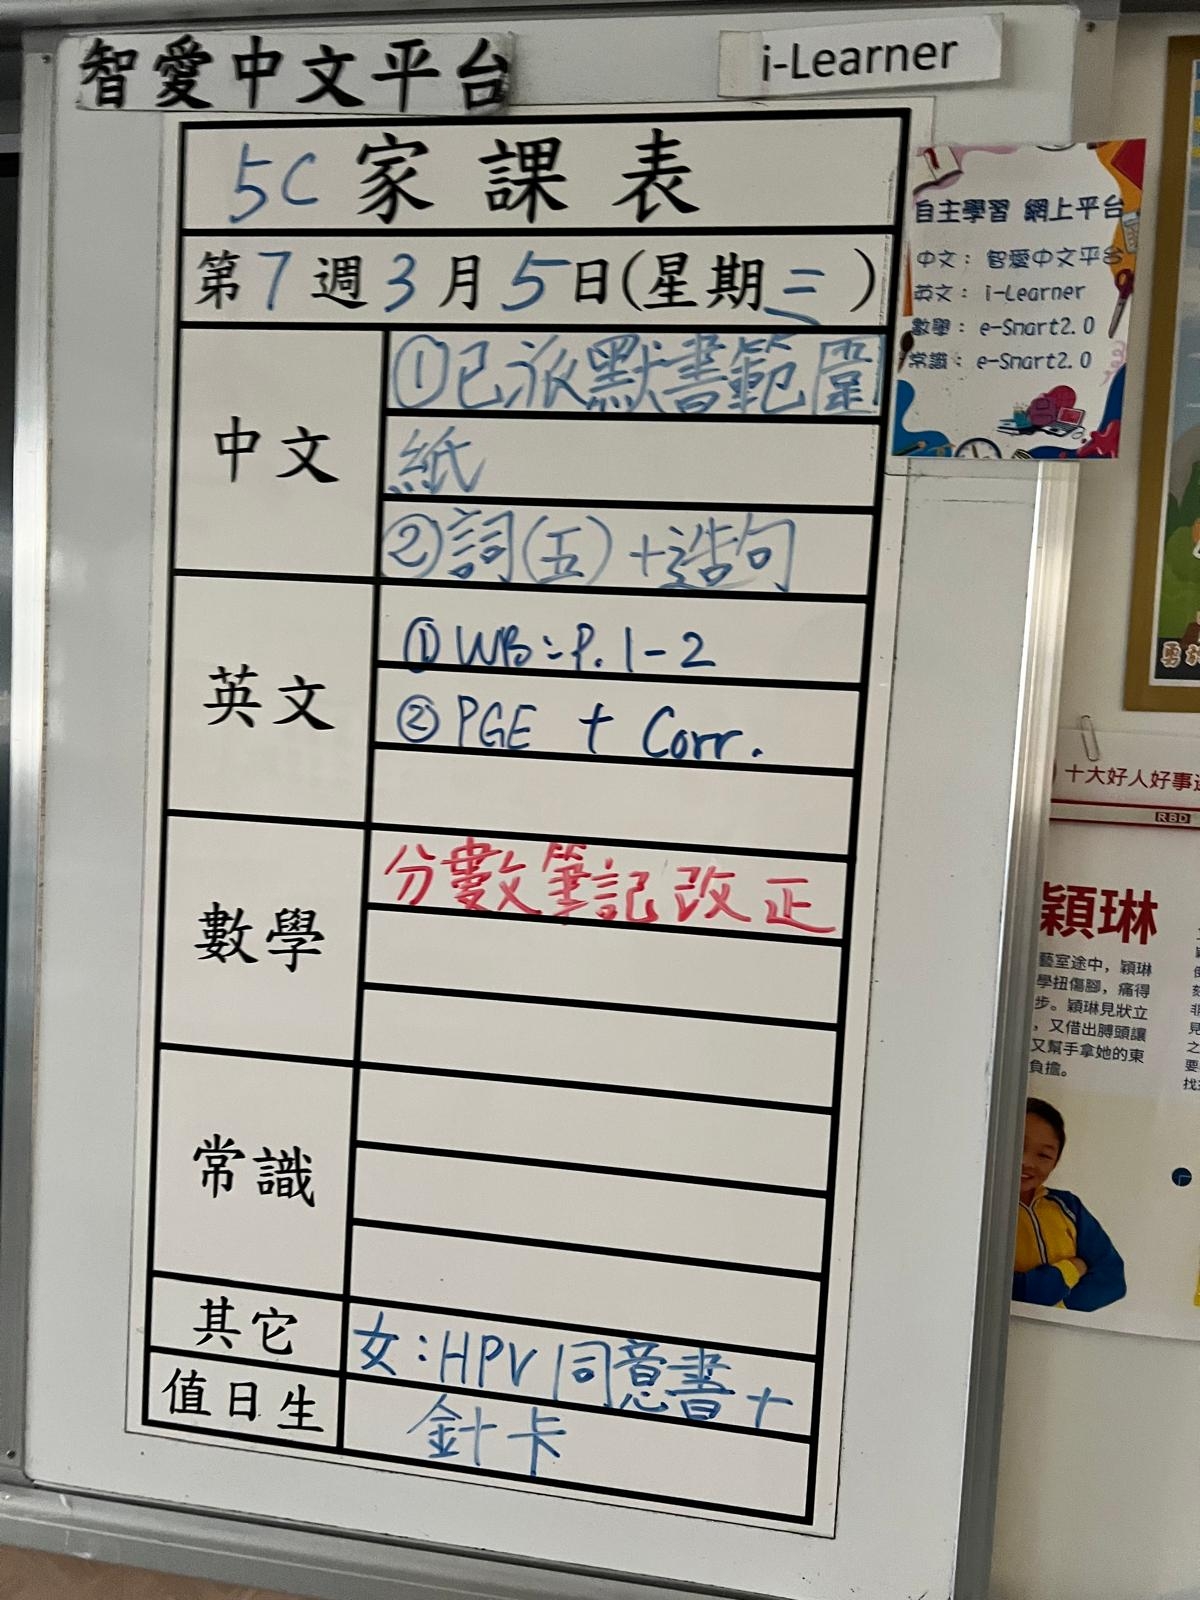 智愛中文平台
i-Learner
5C 家課表
第7週3月5日(星期三)
中文
①已派默書範圍
紙
②詞(五)+造句
英文
①WB:P.1-2
②PGE + Corr.
數學
分數筆記改正
常識
其它
女:HPV同意書+
值日生
針卡
自主學習 網上平台
中文：智愛中文平台
英文：i-Learner
數學：e-Smart2.0
常識：e-Smart2.0
十大好人好事
RBD
穎琳
藝室途中，穎琳
學扭傷腳，痛得
步。穎琳見狀立
，又借出膊頭讓
又幫手拿她的東
負擔。